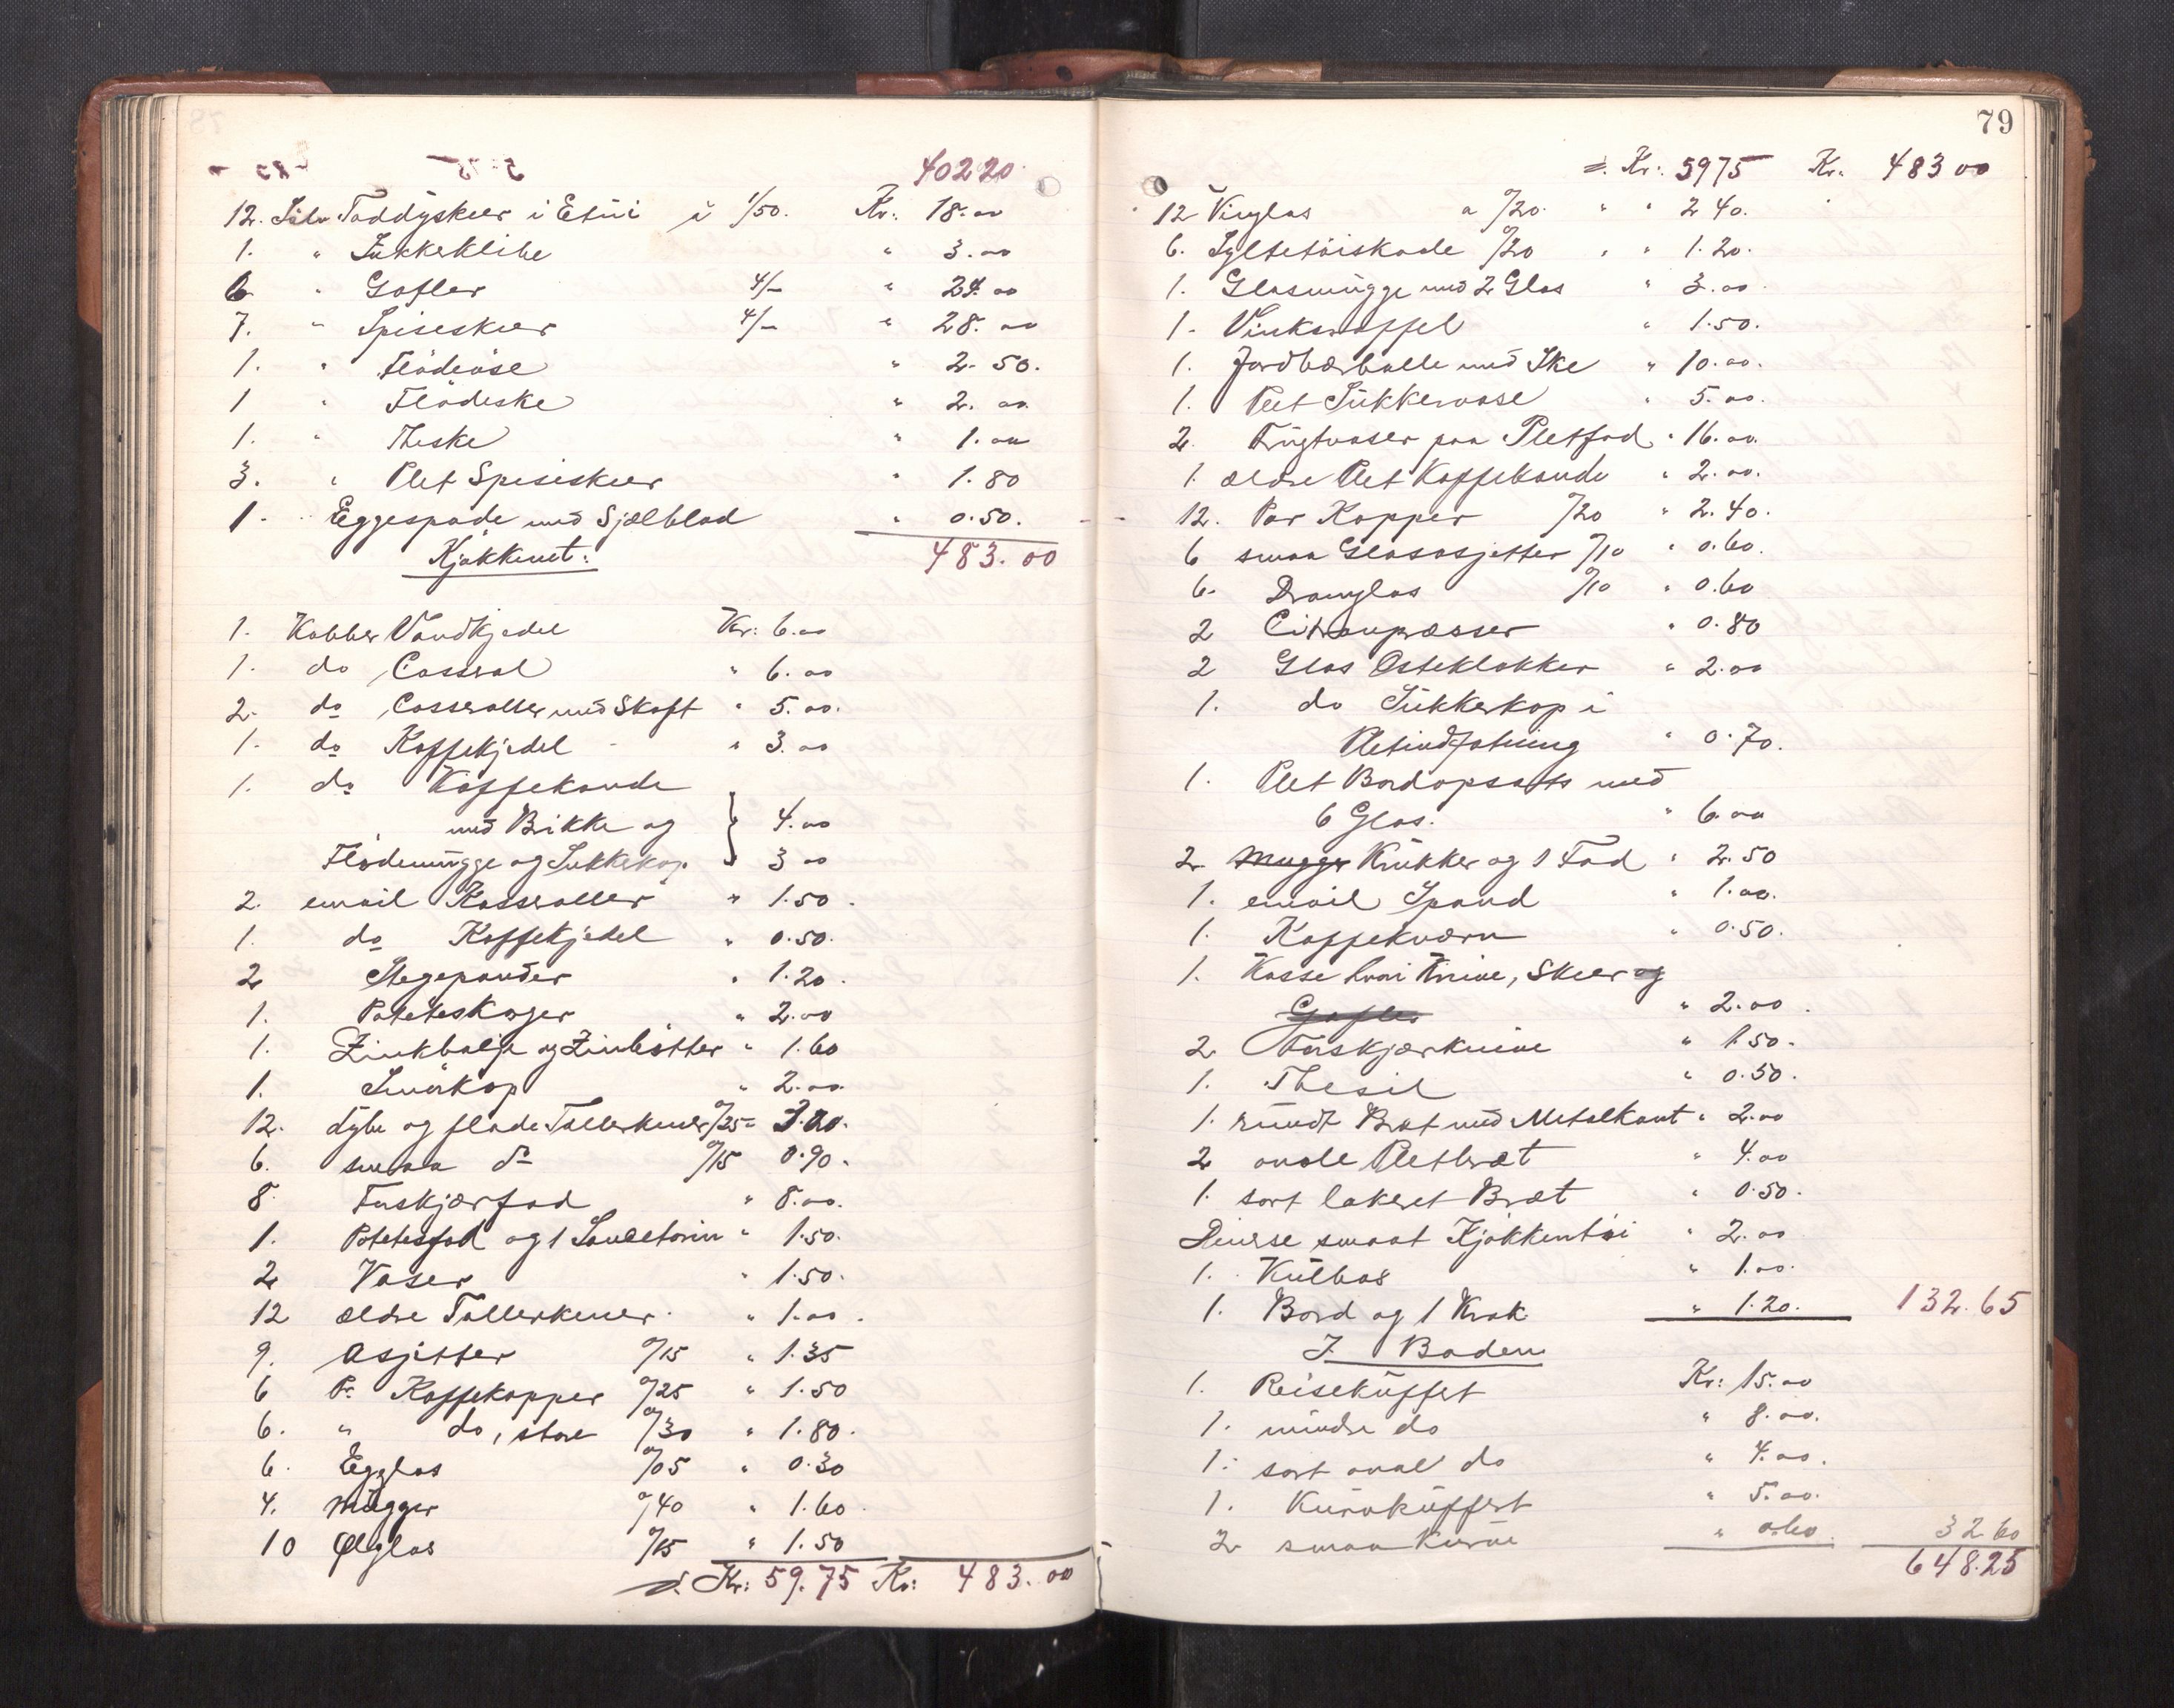 40220
12. Sølv Toddyskeer i Etui à 1/50. Kr. 18.00
1. " Sukkerklibe " 3.00
6 " Gafler 4/- " 24.00
7. " Spiseskeer 4/- " 28.00
1. " Flödeöse " 2.50.
1 " Flödeske " 2.00
1. " Theske " 1.00
3. " Plet Spiseskeer " 1.80
1. Eggespade med Sjælblad " 0.50.
483.00
Kjøkkenet:
1. Kobber Vandkjedel Kr: 6.00
1. do Casserol " 6.00
2. do Casseroller med Skaft " 5.00.
1. do Kaffekjedel " 3.00
1. do Kaffekande
med Brikke og } 4.00
Flödemugge og Sukkekop 3 00
2. email Kasseroller " 1.50.
1. do Kaffekjedel " 0.50.
2 Stegepander " 1.20.
1. Poteteskoger " 2.00
1. Zinkbalje og Zinkbøtter " 1.60
1. Smörkop " 2.00.
12. dybe og flade Tallerkener 0/25 = 3.00.
6. smaa do 0/15 0.90.
8 Forskjærfad " 8.00.
1. Potetesfad og 1 Sauceterin " 1.50.
2 Vaser " 1.50.
12 ældre Tallerkener " 1.00.
9. Asjetter 0/15 " 1.35
6 Pr. Kaffekopper 0/25 " 1.50
6. " do, store 0/30 " 1.80.
6. Egglas 0/05 " 0.30
4. Mugger 0/40 " 1.60
10 Ølglas 0/15 " 1.50
Kr: 59.75 Kr: 483.00
79
Kr: 5975 Kr. 483 00
12 Vinglas a 0/20. " " 2 40.
6. Syltetöiskaale 0/20 " " 1.20.
1. Glasmugge med 2 Glas " 3.00
1. Vinkaraffel " 1.50.
1. Jordbærbolle med Ske " 10.00.
1. Plet Sukkervase " 5.00.
2. Frugtvaser paa Pletfod " 16.00.
1. ældre Plet Kaffekande " 2.00.
12. Par Kopper 0/20 " 2.40.
6 smaa Glasasjetter 0/10 " 0.60.
6. Dramglas 0/10 " 0.60
2 Citronpresser " 0.80
2 Glas Osteklokker " 2.00
1. do Sukkerkop i
Pletindfatning " 0.70.
1. Plet Bordopsats med
6 Glas. " 6.00
2 Mugger Krukker og 1 Fad " 2.50
1. email Spand " 1.00.
1. Kaffekværn " 0.50.
1. Kasse hvori Knive, Skeer og
Gafler " 2.00.
2. Forskjærknive " 1.50.
1. Thesil " 0.50.
1. rundt Bræt med Metalkant " 2.00
2 ovale Pletbræt " 4.00
1. sort lakeret Bræt " 0.50.
Diverse smaat Kjøkkentøi " 2.00
1. Kulbox " 1.00.
1. Bord og 1 Krak " 1.20. 132.65
I Boden
1. Reisekuffert Kr: 15.00
1. mindre do " 8.00.
1. sort oval do " 4.00.
1. Kurvkuffert " 5.00.
2 smaa Kurve " 0.60. 32 60
648.25